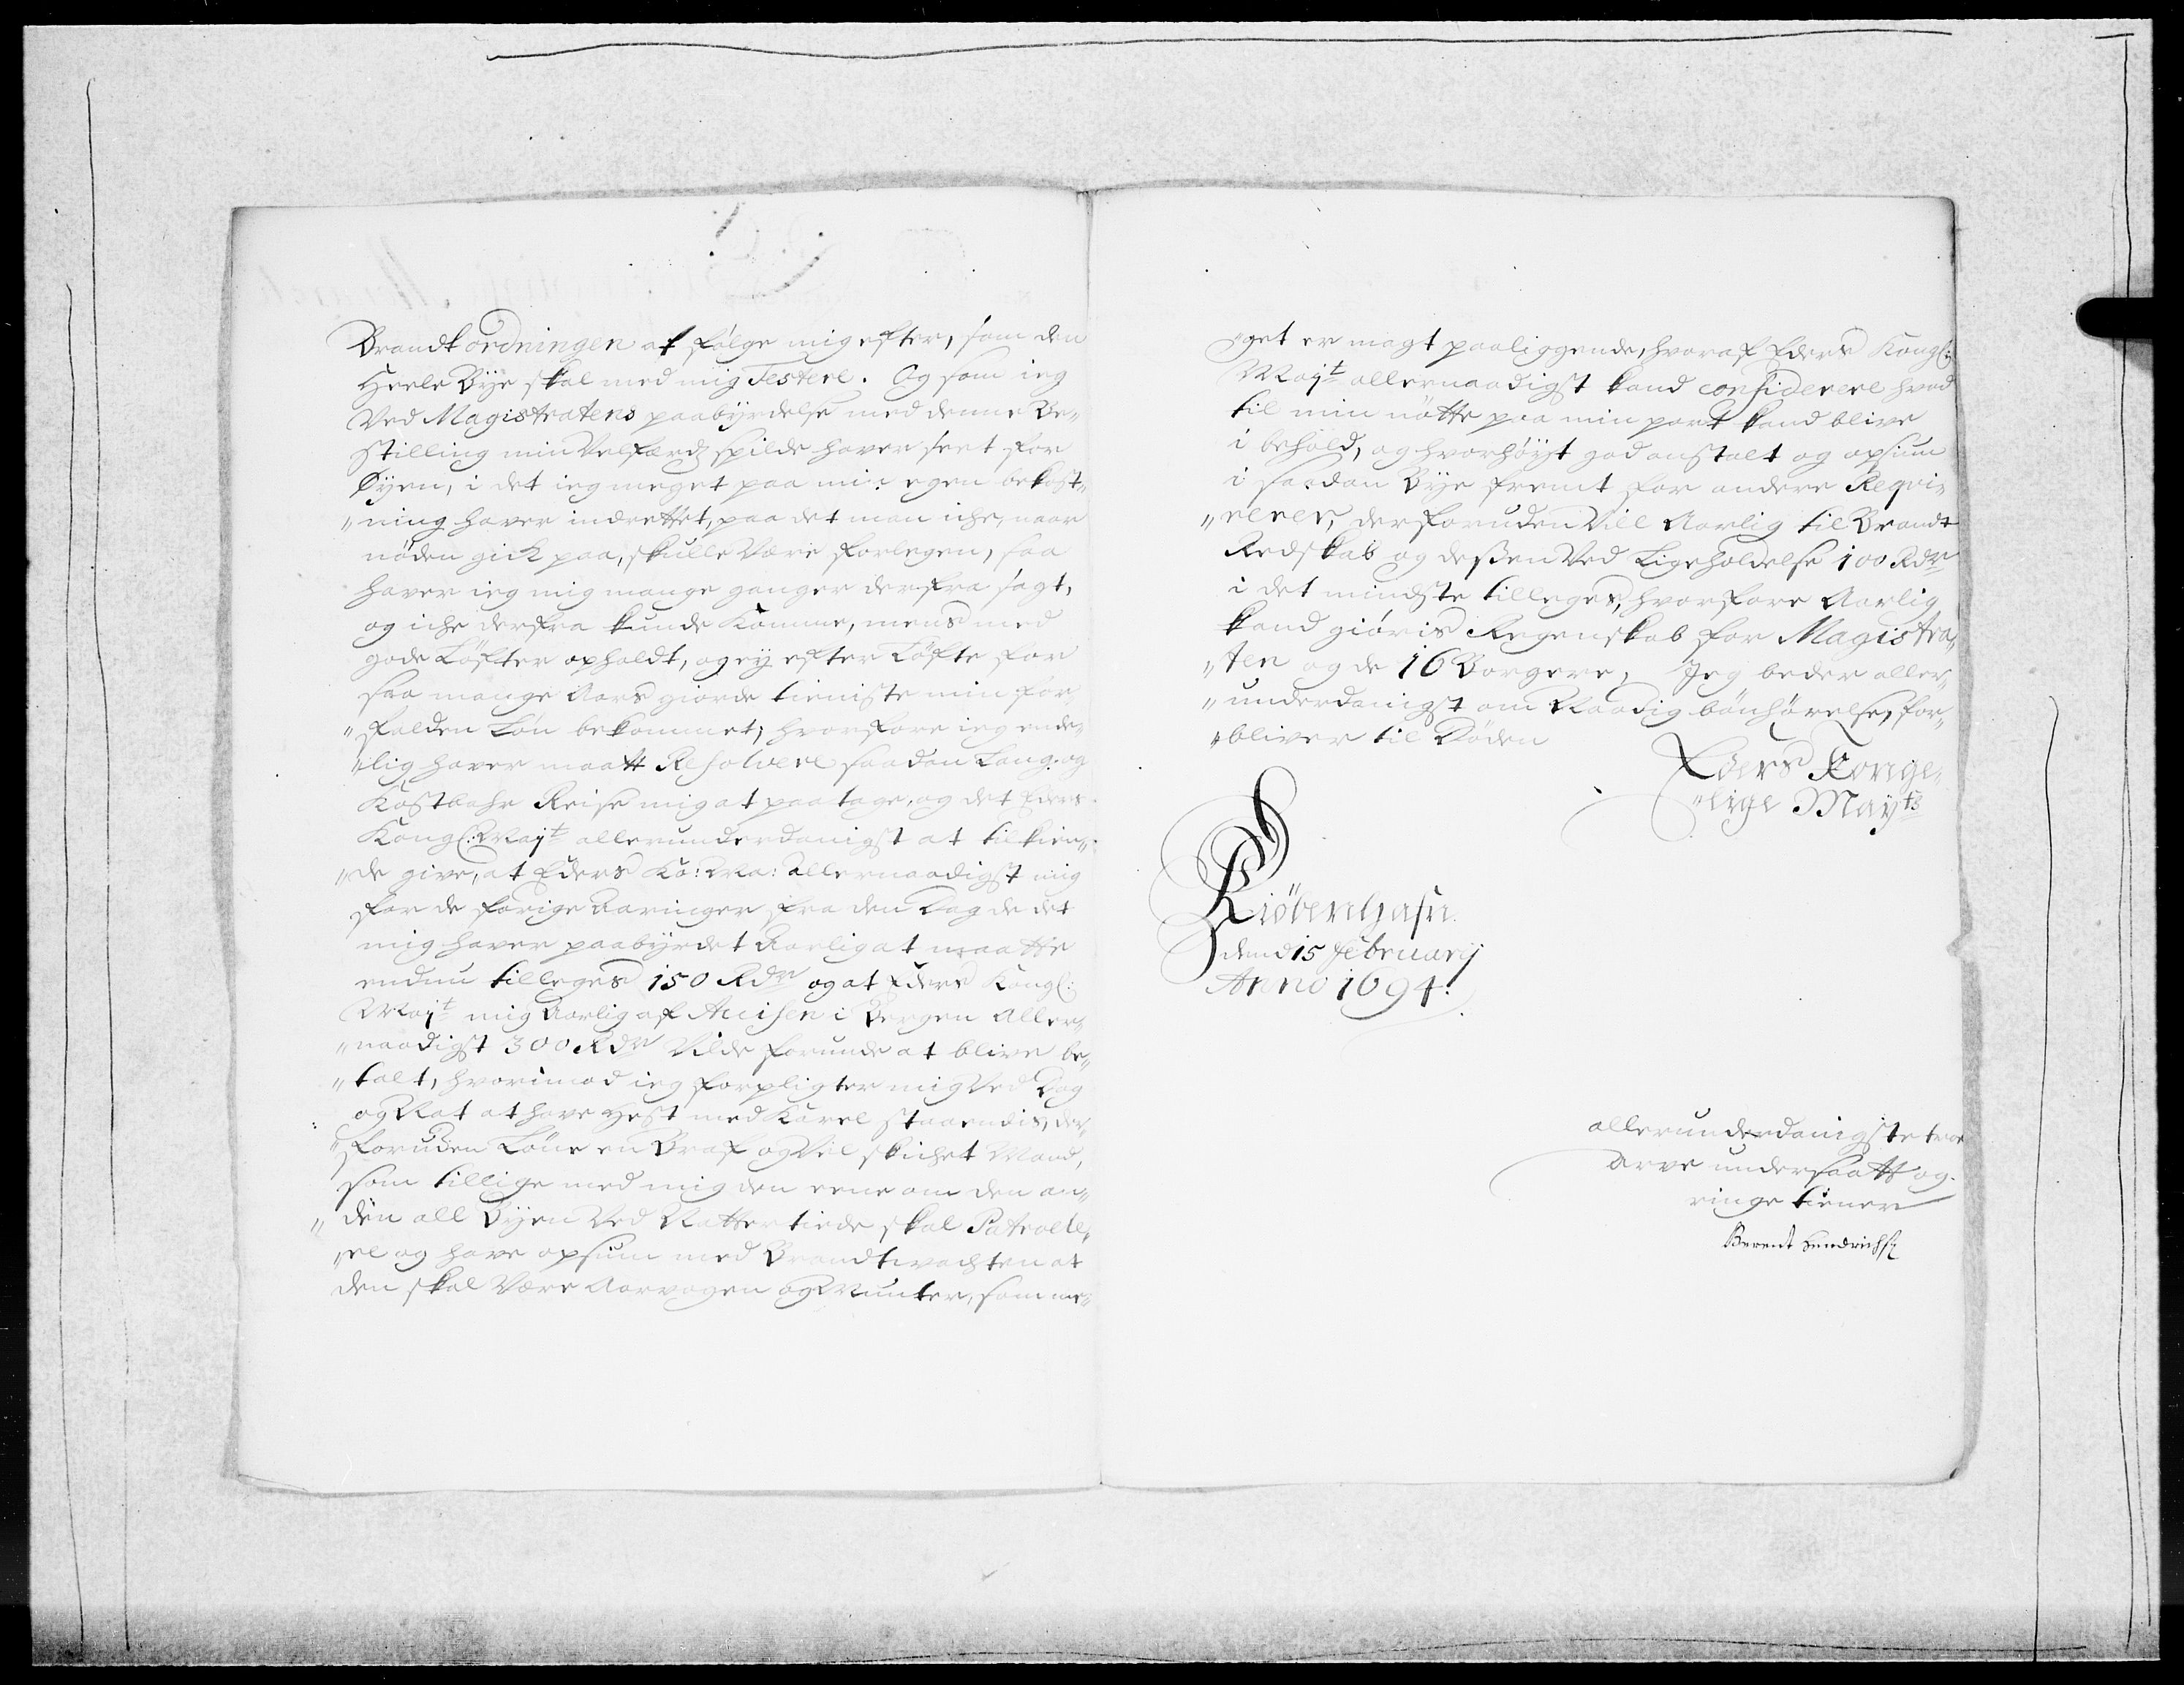 Brandt ordningen at følge mig efter, som den
Heele Bye skal med mig Testere. Og som ieg
Ved Magistratens paabyrdelse med denne Be„
stilling min Velfærdz spilde haver seet for
Øyen, i det ieg meget paa min egen bekost„
„ning haver indrettet, paa det man iche, naar
nøden gick paa, skulle Være forlegen, saa
haver ieg mig mange ganger derfra sagt,
og iche derfra kunde Komme, mens med
gode Løfter opholdt, og ey efter Løfte for
saa mange Aars giorde tieniste min for„
„falden Løn bekommet; hvorfore ieg ende„
„lig haver maatt Resolvere saadan Lang og
Kostbahr Reise mig at paa tage, og det Eders
Kongl: Mayt allerunderdanigst at tilkien„
„de give, at Eders Ko: Ma: allernaadigst mig
for de forige Aaringer fra den Dag de det
mig haver paabyrdet Aarlig at maatte
endnu tilleges 150 Rdr og at Eders Kongl:
Mayt mig Aarlig af Accisen i Bergen Aller„
„naadigst 300 Rdr Vilde forunde at blive be„
„talt, hvorimod ieg forpligter mig Ved Dag
og Nat at have Hest med Karel staaendis, der„
„foruden Løne en Braf og Vel skichet Mand,
som tillige med mig den eene om den an„
„den all Byen Ved Natter tiede skal Patrolle„
„re og have opsiun med Brandtvachten at
den skal Være Aarvagen og Munter, som me„
„get er magt paaliggende, hvoraf Eders Kongl:
Mayt allernaadigst kand considerere hvad
til min nøtte paa min part kand blive
i behold, og hvorhøyt god anstalt og opsiun
i saadan Bye fremt for andere Reqvi„
„rerer, derforuden Vill Aarlig til Brandt
Redskab og deßen Ved Ligeholdelse 100 Rdr
i det mindste tilleges, hvorfore Aarlig
kand giøris Regenskab for Magistra„
„ten og de 16 Borgere, Jeg beder aller„
„underdanigst om Naadig bønhørelse, for„
„bliver til Døden
Eders Konge„
„lige Mayts
Kiøbenhafn
dend 15 February
Anno 1694.
allerunderdanigste troe
Arve undersaatt og
ringe tiener
Berent Hendrichsen